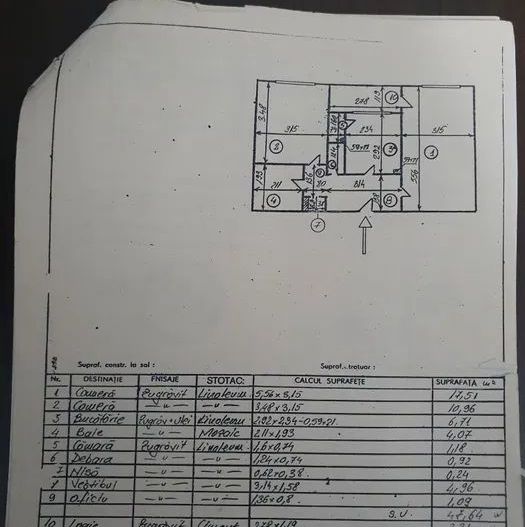 119
278
10
3.48
315
234
315
2
3
1
292
556
193
211
314
4
8
7
Supraf. constr. la sol :
Supraf. trotuar :
Nr. DESTINAȚIE FINISAJE STOTAC: CALCUL SUPRAFEȚE SUPRAFAȚA m²
1 Cameră Zugrăvit Linoleum 5,56 x 3,15 17,51
2 Cameră -"- -"- 3,48 x 3,15 10,96
3 Bucătărie Zugrăv.+Ulei Linoleum 2,92 x 2,34 - 0,59 x 21 6,71
4 Baie -"- Mozaic 2,11 x 1,93 4,07
5 Cămară Zugrăvit Linoleum 1,6 x 0,74 1,18
6 Debara -"- -"- 1,24 x 0,74 0,92
7 Nișă -"- -"- 0,62 x 0,38 0,24
8 Vestibul -"- -"- 3,14 x 1,58 4,96
9 Oficiu -"- -"- 1,36 x 0,8 1,09
S.U. 47,64
10 Logie Zugrăvit Ciment 2,78 x 1,19